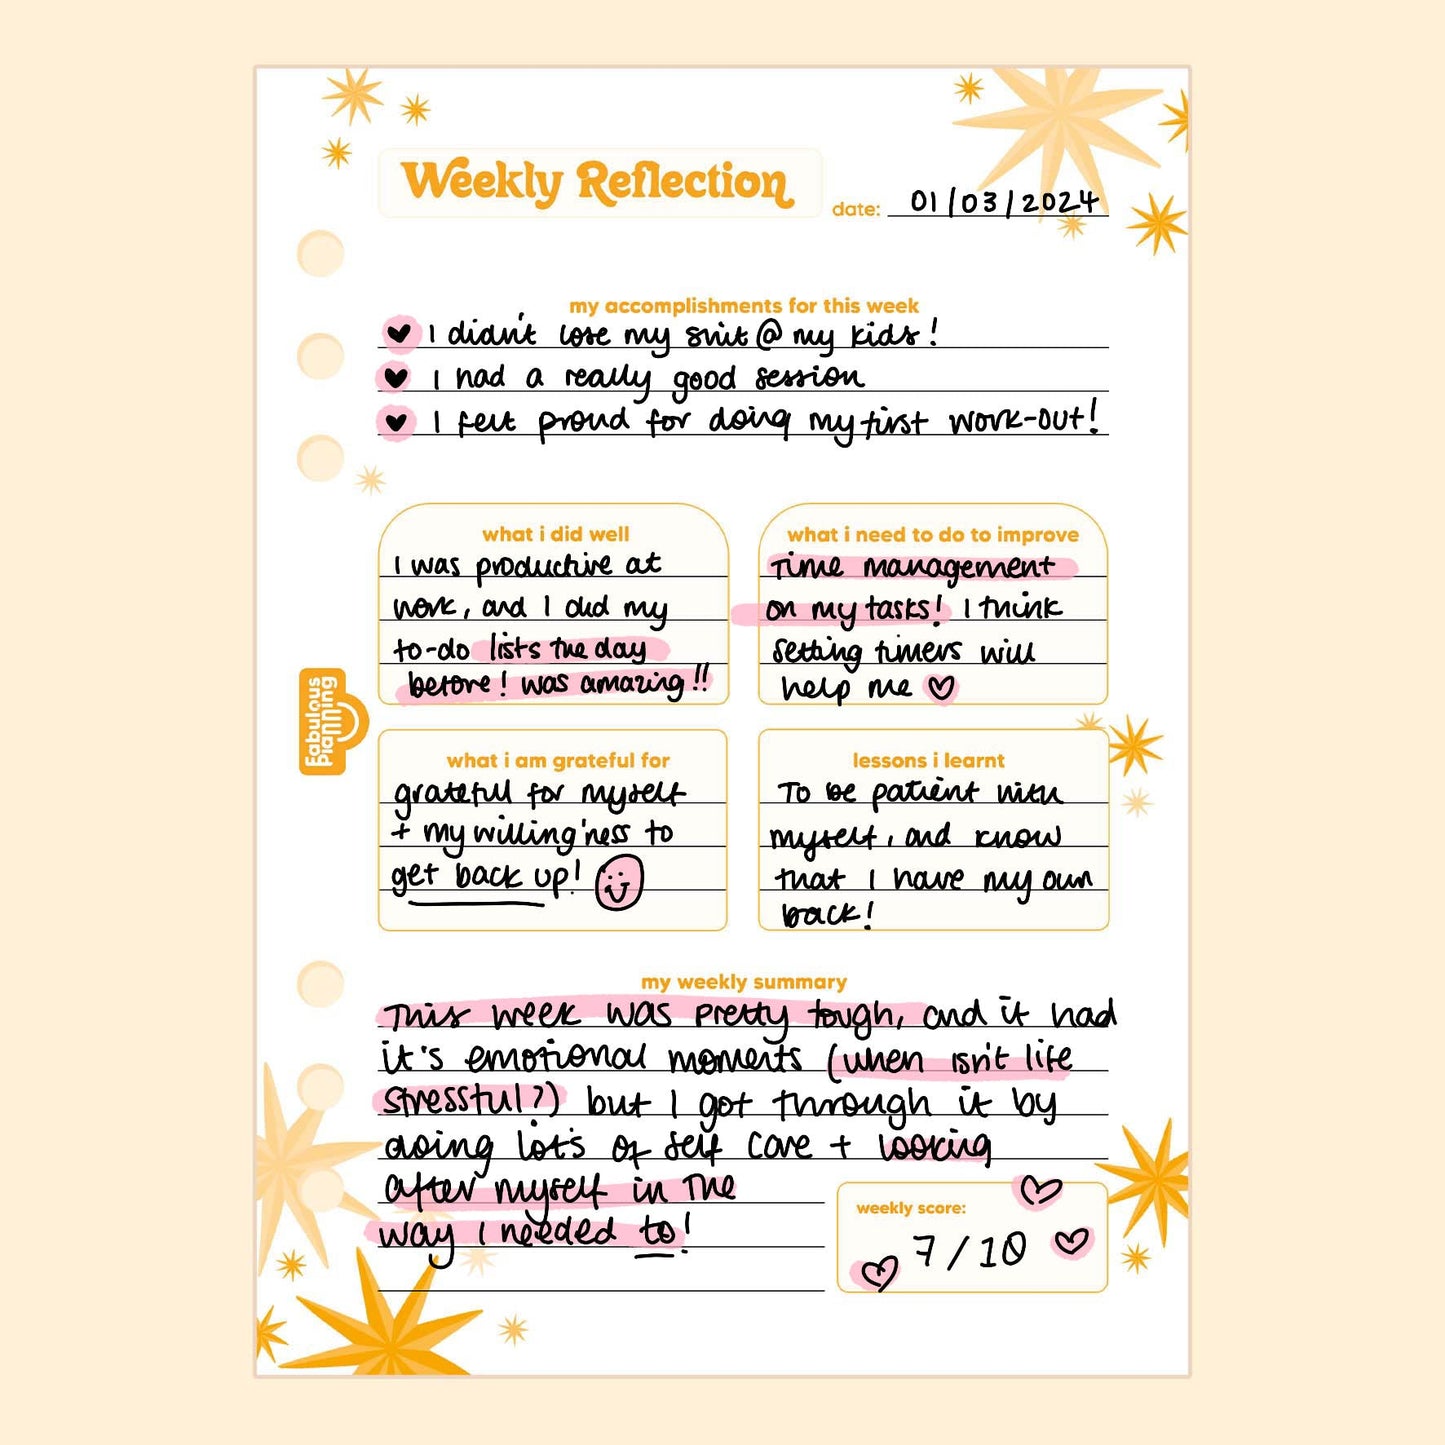 Weekly Reflection
date: 01/03/2024
my accomplishments for this week
I didn't lose my shit @ my kids!
I had a really good session
I felt proud for doing my first work-out!
what i did well
I was productive at
work, and I did my
to-do lists the day
before! was amazing!!
what i need to do to improve
Time management
on my tasks! I think
setting timers will
help me
Fabulous
Planning
what i am grateful for
grateful for myself
+ my willing'ness to
get back up!
lessons i learnt
To be patient with
myself, and know
that I have my own
back!
my weekly summary
This week was pretty tough, and it had
it's emotional moments (when isn't life
stressful?) but I got through it by
doing lot's of self care + looking
after myself in the
way I needed to!
weekly score:
7/10